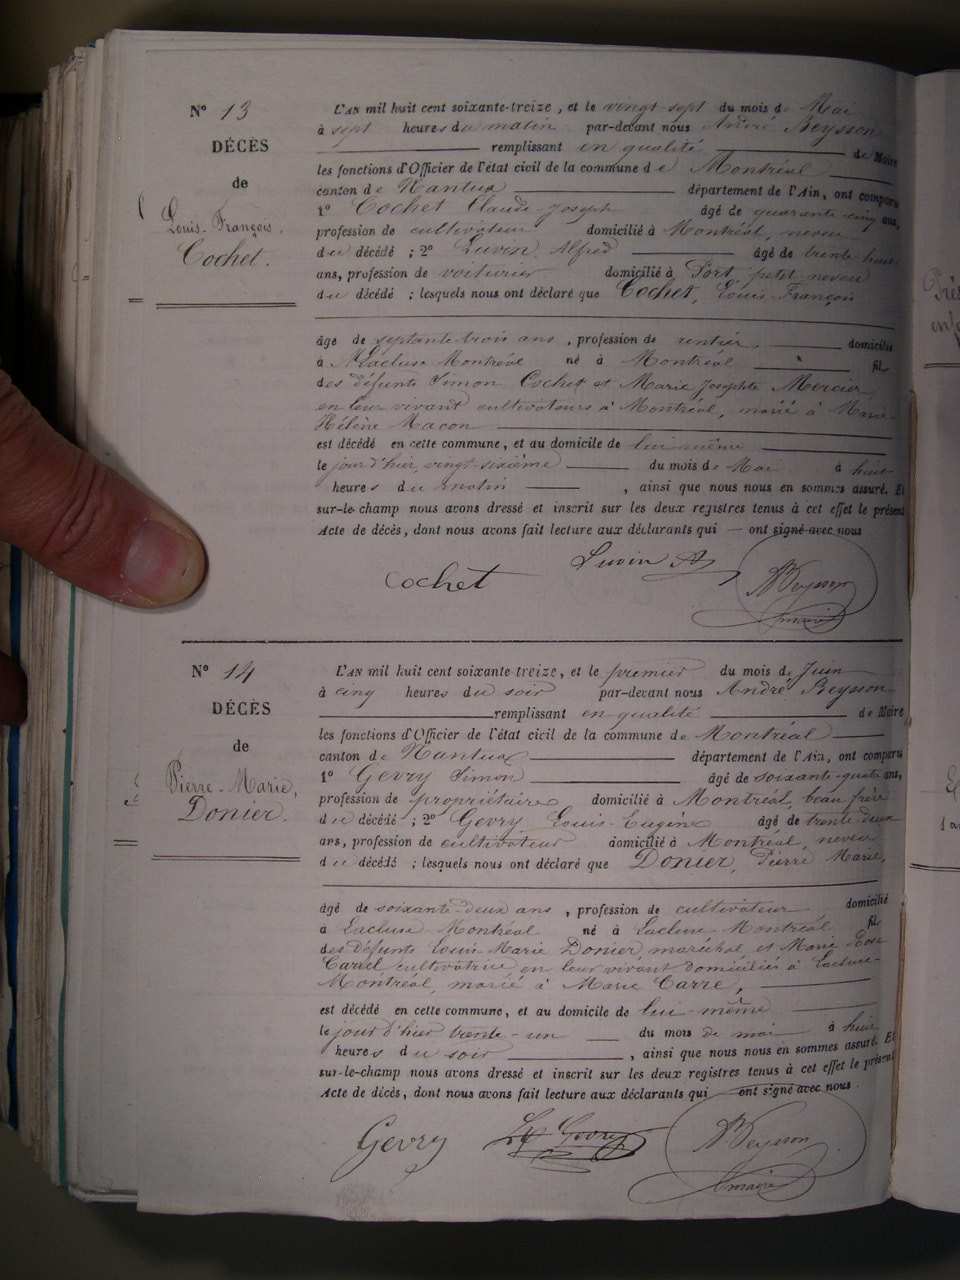 N° 13
DÉCÈS
de
Louis-François
Cochet.
L'AN mil huit cent soixante-treize, et le vingt-sept du mois de Mai
à sept heures du matin par-devant nous André Beysson
remplissant en qualité de Maire
les fonctions d'Officier de l'état civil de la commune de Montréal
canton de Nantua département de l'Ain, ont comparu
1° Cochet Claude-Joseph âgé de quarante-cinq ans,
profession de cultivateur domicilié à Montréal, neveu
du décédé ; 2° Luvin, Alfred âgé de trente-huit
ans, profession de voiturier domicilié à Port, petit-neveu
du décédé ; lesquels nous ont déclaré que Cochet, Louis-François
âgé de septante-trois ans, profession de rentier, domicilié
à Lacluse Montréal né à Montréal fils
des défunts Simon Cochet et Marie Josephte Mercier
en leur vivant cultivateurs à Montréal, marié à Marie-
Hélène Macon
est décédé en cette commune, et au domicile de lui-même
le jour d'hier, vingt-sixième du mois de Mai à huit
heures du matin, ainsi que nous nous en sommes assuré. Et
sur-le-champ nous avons dressé et inscrit sur les deux registres tenus à cet effet le présent
Acte de décès, dont nous avons fait lecture aux déclarants qui ont signé avec nous
Cochet Luvin A Beysson
maire
N° 14
DÉCÈS
de
Pierre-Marie,
Donier.
L'AN mil huit cent soixante-treize, et le premier du mois de Juin
à cinq heures du soir par-devant nous André Beysson
remplissant en qualité de Maire
les fonctions d'Officier de l'état civil de la commune de Montréal
canton de Nantua département de l'Ain, ont comparu
1° Gevry Simon âgé de soixante-quatre ans,
profession de propriétaire domicilié à Montréal, beau frère
du décédé ; 2° Gevry Louis-Eugène âgé de trente-deux
ans, profession de cultivateur domicilié à Montréal, neveu
du décédé ; lesquels nous ont déclaré que Donier, Pierre Marie,
âgé de soixante-deux ans, profession de cultivateur domicilié
à Lacluse Montréal né à Lacluse-Montréal fils
des défunts Louis-Marie Donier, maréchal, et Marie Rose
Carrel cultivatrice en leur vivant domiciliés à Lacluse-
Montréal, marié à Marie Carre,
est décédé en cette commune, et au domicile de lui-même
le jour d'hier trente-un du mois de mai à huit
heures du soir, ainsi que nous nous en sommes assuré. Et
sur-le-champ nous avons dressé et inscrit sur les deux registres tenus à cet effet le présent
Acte de décès, dont nous avons fait lecture aux déclarants qui ont signé avec nous.
Gevry Gevry Beysson
maire